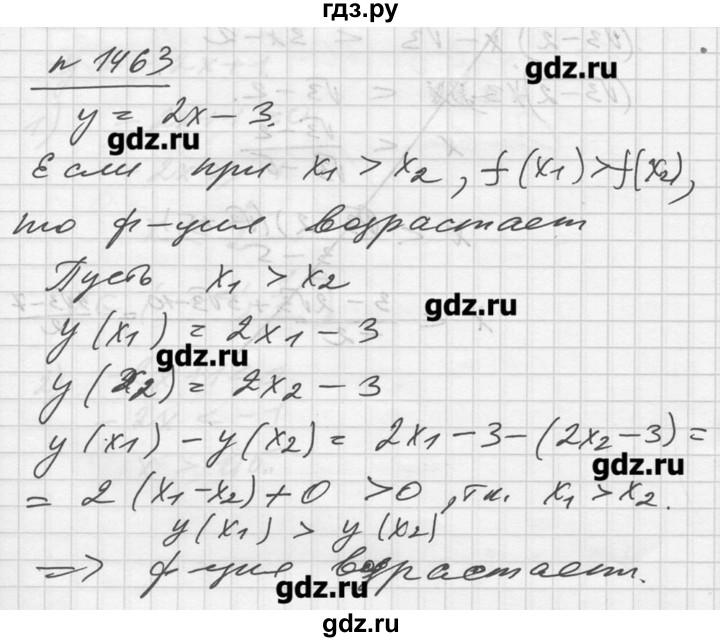 гдз.ру
n 1463
y = 2x - 3.
gdz.ru
gdz.ru
Если при x₁ > x₂, f(x₁) > f(x₂),
то ф-ция возрастает
Пусть x₁ > x₂
gdz.ru
y(x₁) = 2x₁ - 3
gdz.ru
y(x₂) = 2x₂ - 3
y(x₁) - y(x₂) = 2x₁ - 3 - (2x₂ - 3) =
gdz.ru
= 2(x₁ - x₂) + 0 > 0, т.к. x₁ > x₂.
y(x₁) > y(x₂)
=> ф-ция возрастает.
gdz.ru
гдз.ру